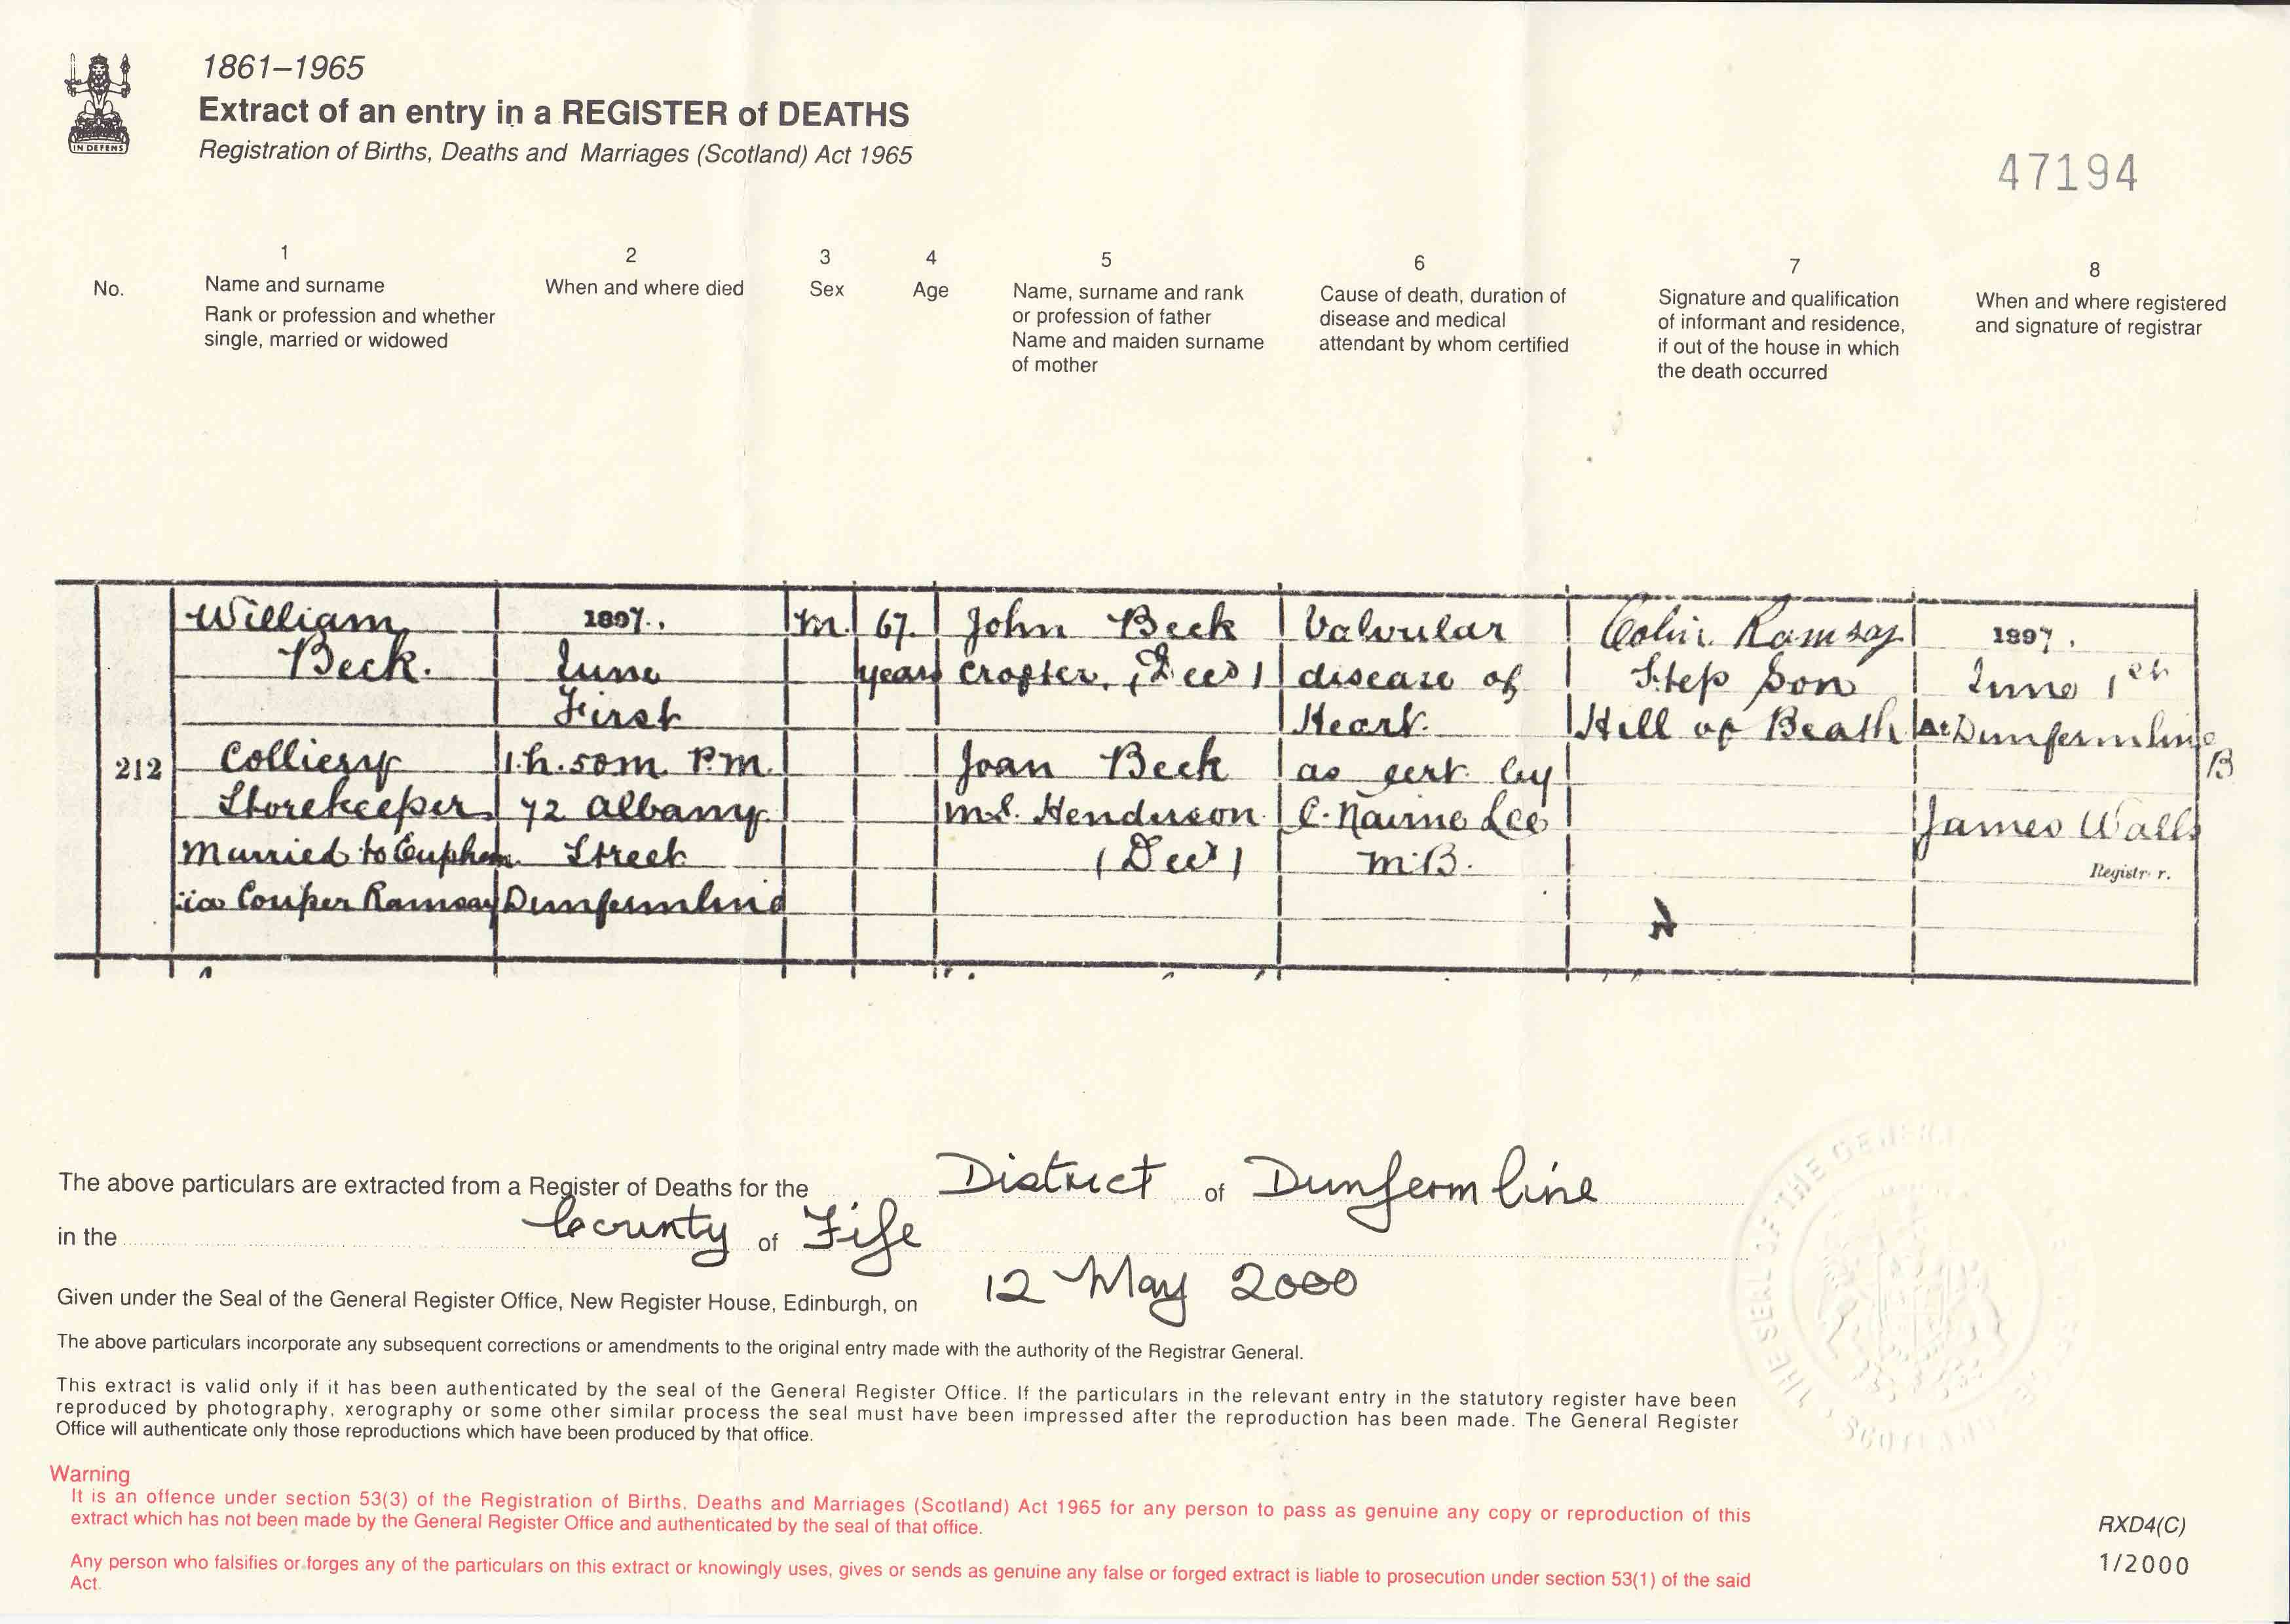 IN DEFENS
1861–1965
Extract of an entry in a REGISTER of DEATHS
Registration of Births, Deaths and Marriages (Scotland) Act 1965
47194
No.
1
Name and surname
Rank or profession and whether
single, married or widowed
2
When and where died
3
Sex
4
Age
5
Name, surname and rank
or profession of father
Name and maiden surname
of mother
6
Cause of death, duration of
disease and medical
attendant by whom certified
7
Signature and qualification
of informant and residence,
if out of the house in which
the death occurred
8
When and where registered
and signature of registrar
212
William
Beck.
Colliery
Storekeeper
Married to Euphem
ia Couper Ramsay
1897.
June
First
1.h. 50m. P.m.
72 Albany
Street
Dunfermline
M.
67
years
John Beck
Crofter. (Decd)
Joan Beck
M.S. Henderson
(Decd)
Valvular
disease of
Heart.
as cert by
C. Nairne Lee
M.B.
Colin Ramsay
Step Son
Hill of Beath
1897.
June 1st
At Dunfermline
B
James Walls
Registrar.
The above particulars are extracted from a Register of Deaths for the District of Dunfermline
in the County of Fife
Given under the Seal of the General Register Office, New Register House, Edinburgh, on 12 May 2000
The above particulars incorporate any subsequent corrections or amendments to the original entry made with the authority of the Registrar General.
This extract is valid only if it has been authenticated by the seal of the General Register Office. If the particulars in the relevant entry in the statutory register have been
reproduced by photography, xerography or some other similar process the seal must have been impressed after the reproduction has been made. The General Register
Office will authenticate only those reproductions which have been produced by that office.
Warning
It is an offence under section 53(3) of the Registration of Births, Deaths and Marriages (Scotland) Act 1965 for any person to pass as genuine any copy or reproduction of this
extract which has not been made by the General Register Office and authenticated by the seal of that office.
Any person who falsifies or forges any of the particulars on this extract or knowingly uses, gives or sends as genuine any false or forged extract is liable to prosecution under section 53(1) of the said
Act.
THE SEAL OF THE GENERAL
SCOTLAND
RXD4(C)
1/2000